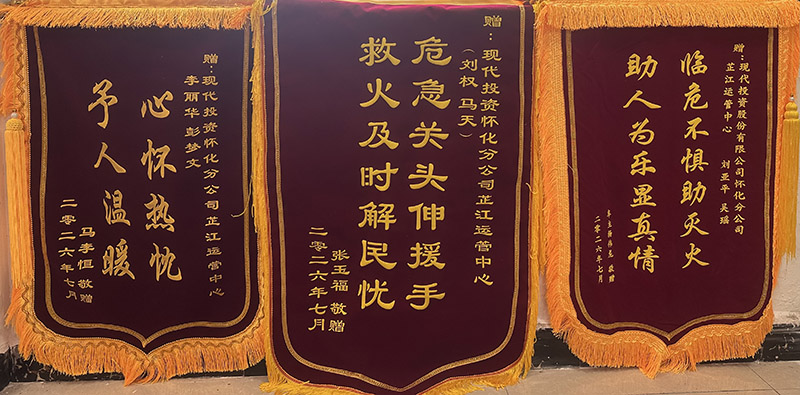 赠：现代投资怀化分公司芷江运营中心
李丽华 彭梦文
心怀热忱
予人温暖
马李恒 敬赠
二零二六年七月
赠：现代投资怀化分公司芷江运营中心
（刘权 马天）
危急关头伸援手
救火及时解民忧
张玉福 敬赠
二零二六年七月
赠：现代投资股份有限公司怀化分公司
芷江运营中心 刘亚平 吴瑶
临危不惧助灭火
助人为乐显真情
车主 敬赠
二零二六年七月